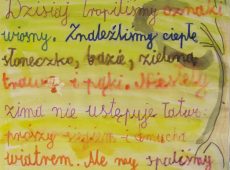 Dzisiaj tropiliśmy oznaki
wiosny. Znaleźliśmy ciepłe
słoneczko, bazie, zieloną
trawę i pąki. Niestety
zima nie ustępuje łatwo
prószy śniegiem i dmucha
wiatrem. Ale my spaliśmy